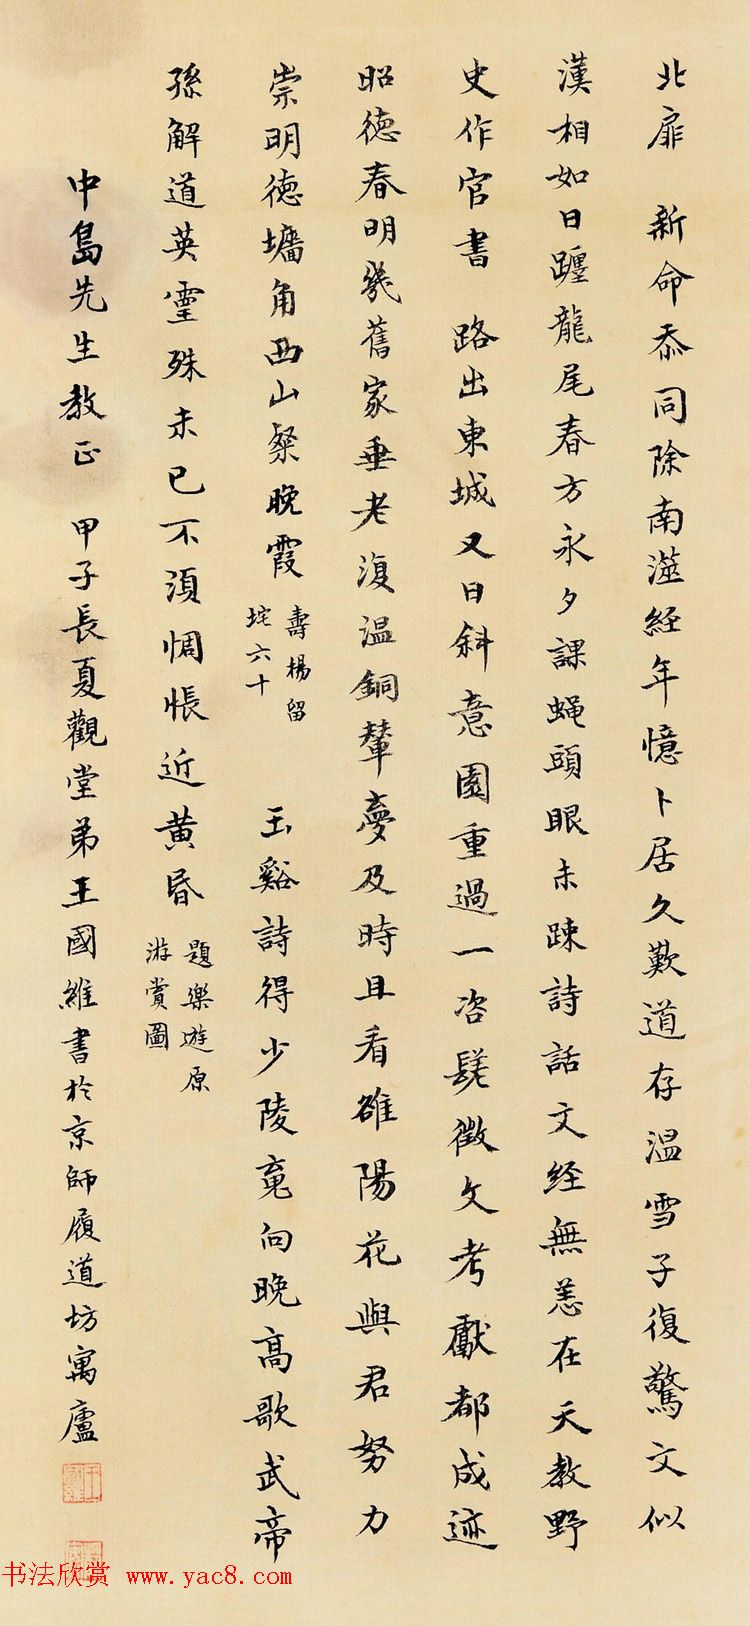 北扉　新命忝同除南遊經年憶卜居久歎道存溫雪子復驚文似
漢相如日躔龍尾春方永夕課蠅頭眼未疎詩話文經無恙在天教野
史作官書　路出東城又日斜意園重過一咨嗟徵文考獻都成迹
昭德春明幾舊家垂老復溫銅輦夢及時且看雒陽花與君努力
崇明德墻角西山粲晚霞
壽楊留
垞六十
玉谿詩得少陵竟向晚高歌武帝
孫解道英靈殊未已不須惆悵近黃昏
題樂遊原
游賞圖
中島先生教正　甲子長夏觀堂弟王國維書於京師履道坊寓廬
书法欣赏 www.yac8.com